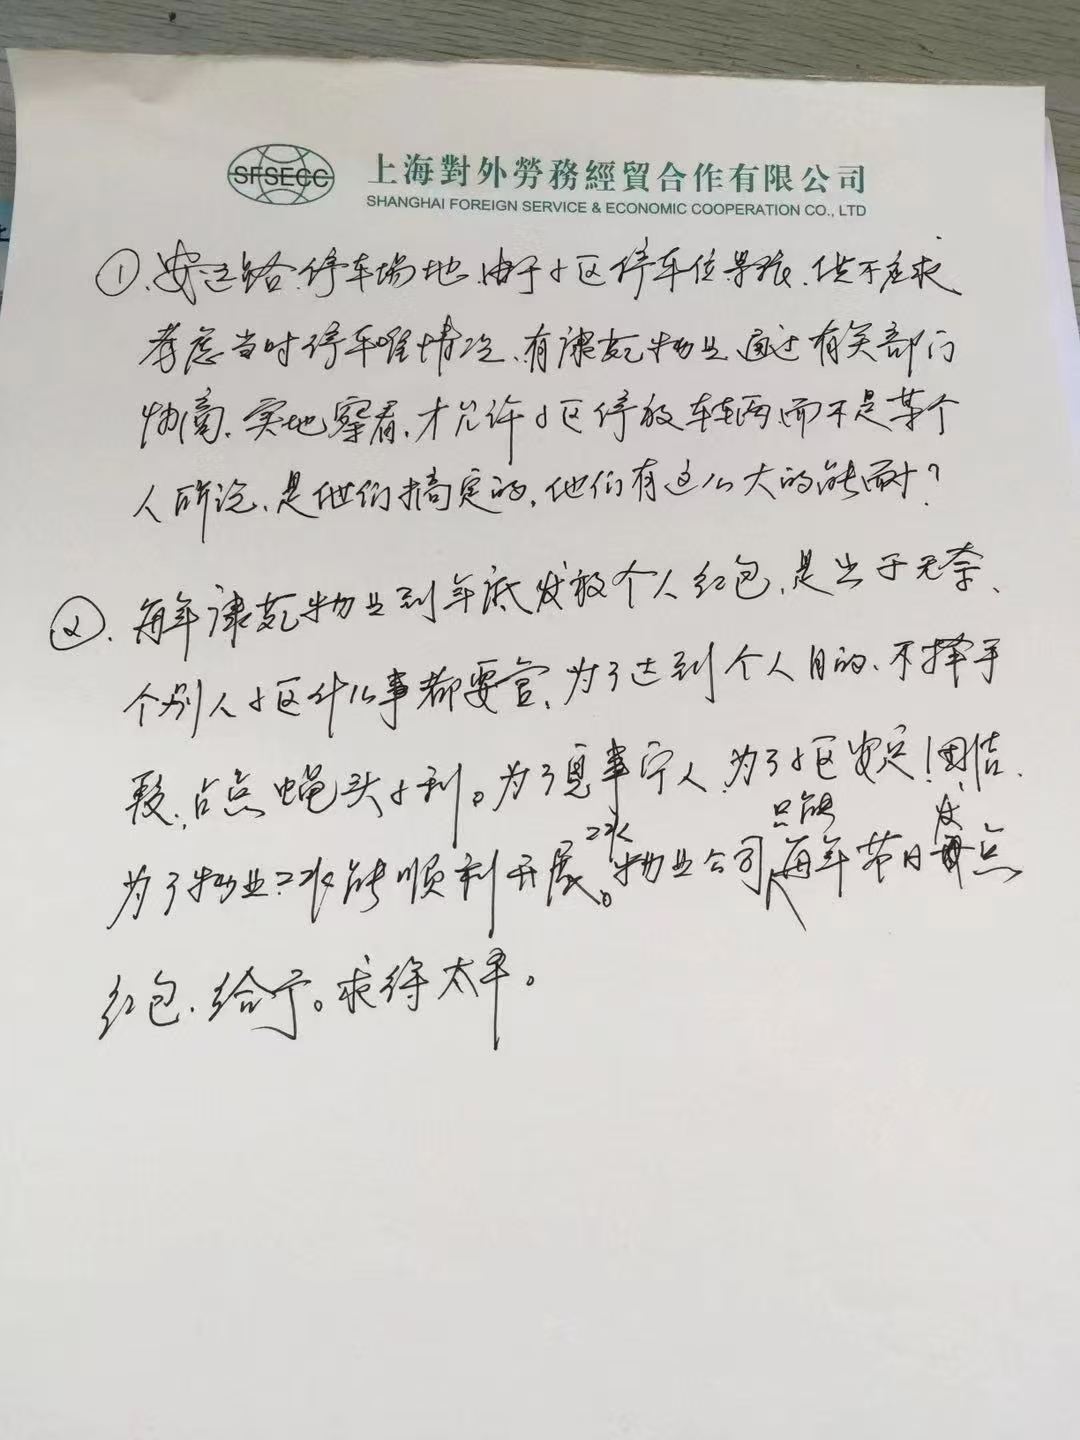 SFSECC 上海對外勞務經貿合作有限公司
SHANGHAI FOREIGN SERVICE & ECONOMIC COOPERATION CO., LTD
①、安远路、停车场地、由于小区停车位紧张、供不应求
考虑当时停车难情况、有 物业 通过有关部门
协商、实地察看、才允许小区停放车辆、而不是某个
人所说、是他们搞定的、他们有这么大的能耐？
②、每年 物业到年底发放个人红包、是出于无奈、
个别人小区什么事都要管、为了达到个人目的、不择手
段、占点蝇头小利。为了息事宁人、为了小区安定！团结、
为了物业工作能顺利开展。物业公司只能每年节日发点
红包、给予。求得太平。